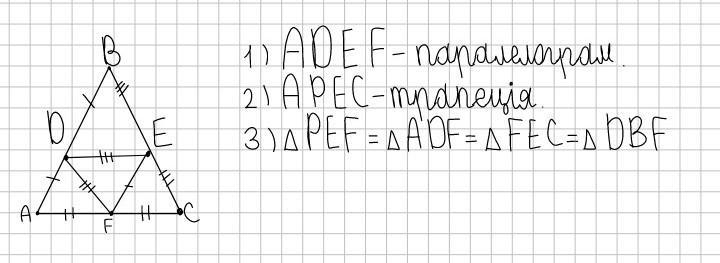 B
D
E
A
F
C
1) ADEF - паралелограм.
2) APEC - трапеція.
3) △PEF = △ADF = △FEC = △DBF